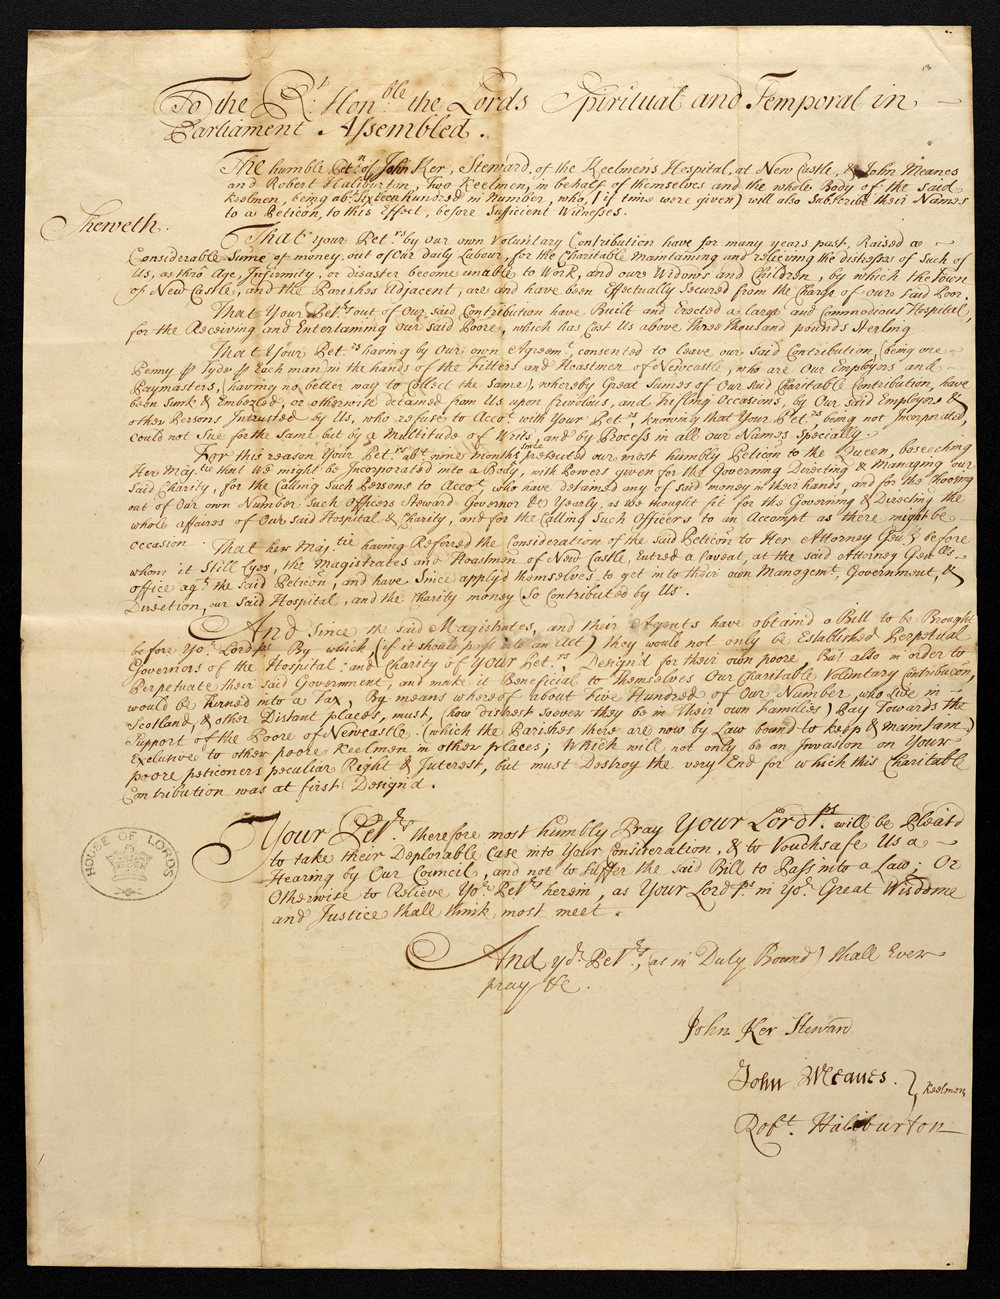 To the Rt. Honble the Lords Spiritual and Temporal in
Parliament Assembled.
The humble Petn of John Ker, Steward, of the Keelmens Hospital, at New Castle, & John Meanes
and Robert Haliburton, Two Keelmen, in behalf of themselves and the whole Body of the said
Keelmen, being abt Sixteen hundred in Number, who, (if time were given) will also Subscribe their Names
to a Peticon, to this Effect, before Sufficient Witnesses.
Sheweth.
That your Petrs by our own Voluntary Contribution have for many years past, Raised a
Considerable Sume of money, out of Our daily Labour, for the Charitable Maintaining and relieving the distresses of Such of
Us, as thro' Age, Infirmity, or disaster become unable to Work, and our Widows and Children, by which the Town
of New Castle, and the Parishes Adjacent, are and have been Effectually Secured from the Charge of our said Poor.
That Your Petrs out of Our said Contribution have Built and Erected a large and Commodious Hospital,
for the Receiving and Entertaining Our said Poore, which has Cost Us above Three thousand pounds Sterling
That Your Petrs having by Our own Agreemt, consented to leave our Said Contribution, (being one
Penny p Tyde p Each man) in the hands of the Fitters and Hoastmen of Newcastle, who are Our Employrs and
Paymasters, (having no better way to Collect the same), whereby Great Sumes of Our Said Charitable Contribution, have
been Sunk & Embezled, or otherwise detained from Us upon frivolous, and trifling Occasions, by Our said Employrs &
other Persons Intrusted by Us, who refuse to Accot. with Your Petrs, knowing that Your Petrs, being not Incorporated,
could not Sue for the Same but by a Multitude of Writs, and by Process in all our Names Specially
For this reason Your Petrs abt. nine months since presented our most humbly Peticon to the Queen, beseeching
Her Majtie that We might be Incorporated into a Body, with Powers given for the Governing Directing & Managing our
Said Charity, for the Calling Such Persons to Accot. who have detained any of said money in their hands, and for the Choosing
out of Our own Number Such Officers Steward Governor &c Yearly, as we thought fit for the Governing & Directing the
whole affaires of Our said Hospital & Charity, and for the Calling Such Officers to an Accompt as there might be
occasion.
That her Majtie having Refered the Consideration of the said Peticon to Her Attorney Genll before
whom it Still Lyes, the Magistrates and Hoastmen of New Castle, Entred a Caveat, at the said Attorney Genlls
office agt. the said Peticon, and have Since apply'd themselves to get into their own Managemt, Government, &
Direction, our said Hospital, and the Charity money so Contributed by Us.
And Since the said Magistrates, and their Agents have obtain'd a Bill to be Brought
before Yor. Lordps. By which (if it should pass into an Act) they would not only be Established Perpetual
Governors of the Hospital: and Charity of Your Petrs, Design'd for their own poore, But also in order to
Perpetuate their said Government, and make it Beneficial to themselves Our Charitable Voluntary Contribucon,
would be turned into a Tax, By means whereof about Five Hundred of Our Number, who Live in
Scotland, & other Distant places, must, (how distrest soever they be in Their own Families) Pay Towards the
Support of the Poore of Newcastle. (which the Parishes there are now by Law bound to keep & maintain)
Exclusive to other poore Keelmen in other places; Which will not only be an Invasion on Your
poore peticoners peculiar Right & Interest, but must Destroy the very End for which this Charitable
Contribution was at first Design'd.
Your Petrs therefore most humbly Pray Your Lordps. will be Pleas'd
to take their Deplorable Case into Your Consideration, & to Vouchsafe Us a
Hearing by Our Council, and not to Suffer the said Bill to Pass into a Law; Or
Otherwise to Relieve Yor. Petrs herein, as Your Lordps in Yor. Great Wisdome
and Justice shall think most meet.
And yor. Petrs, (as in Duty Bound) shall Ever
pray &c.
HOUSE OF LORDS
John Ker Steward
John Meanes.
Keelmen
Robt. Haliburton